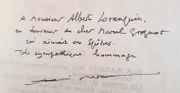 à Monsieur Albert Loranquin,
en souvenir du cher Marcel Grognot
qui aimait ces Épîtres.
En sympathique hommage